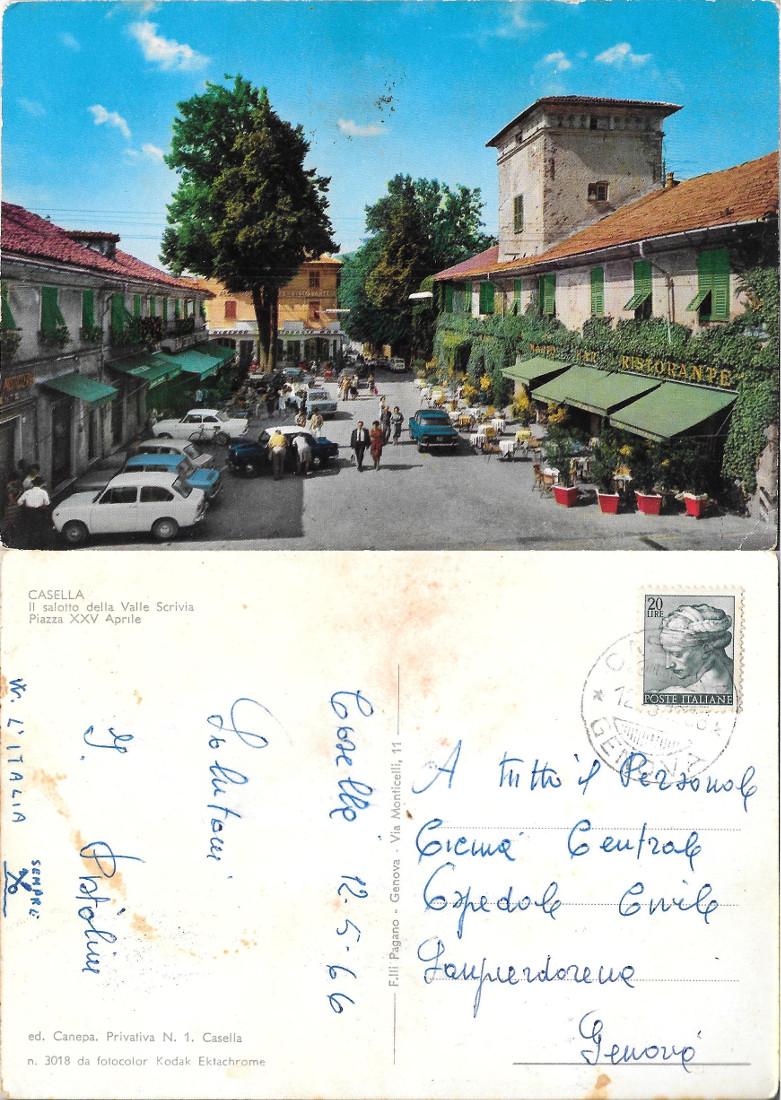 RISTORANTE
BAR RISTORANTE
CASELLA
Il salotto della Valle Scrivia
Piazza XXV Aprile
20
LIRE
POSTE ITALIANE
GENOVA
Casella 12-5-66
Saluti
W. L'ITALIA
SEMPRE
F.lli Pagano - Genova - Via Monticelli, 11
A tutto il Personale
Cucina Centrale
Ospedale Civile
Sampierdarena
Genova
ed. Canepa. Privativa N. 1. Casella
n. 3018 da fotocolor Kodak Ektachrome